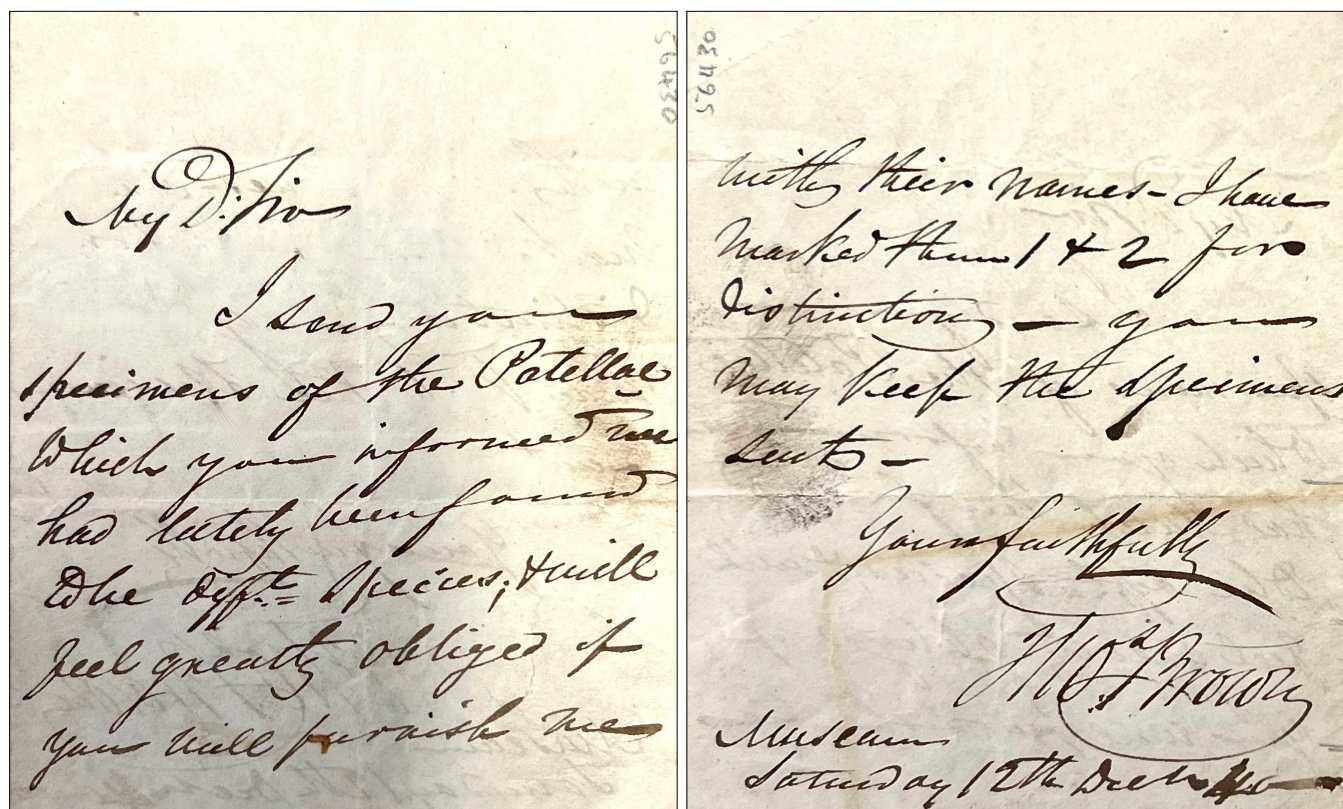 56430
My Dr. Sir
I send you
specimens of the Patellae
which you informed me
had lately been found
to be difft. species; & will
feel greatly obliged if
you will furnish me
56430
with their names - I have
marked them 1 & 2 for
distinction - you
may keep the specimens
sent -
Yours faithfully
Thos. Brown
Museum
Saturday 12th Decr